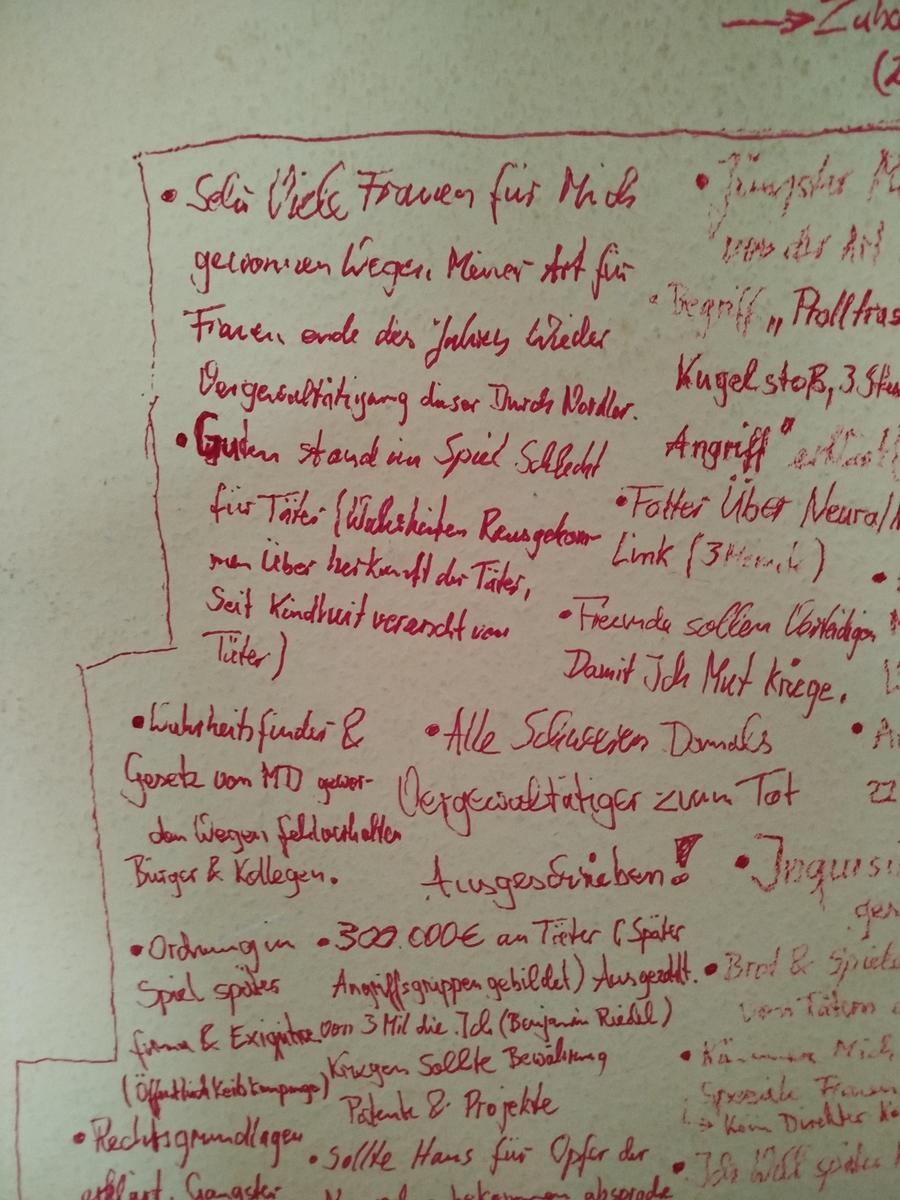 → Zube
(2
• Sehr Viele Frauen für Mich
gewonnen Wegen Meiner Art für
Frauen, ende des Jahres Wieder
Vergewaltätigung dieser Durch Nordler.
• Guten stand im Spiel Schlecht
für Täter (Wahrheiten Rausgekom-
men Über herkunft der Täter,
Seit Kindheit verarscht von
Täter)
• Wahrheitsfinder &
Gesetz vom MD gewor-
den Wegen fehlverhalten
Bürger & Kollegen.
• Ordnung im
Spiel später
firma &
(Öffentlichkeitskampange)
• Rechtsgrundlagen
erklärt, Gangster
• Jüngster M
von der Art
• Begriff „Prolltras
Kugelstoß, 3. Stu
Angriff" erklärt
• Folter Über Neural
Link (3
• Freunde sollen Verteidigen
Damit Ich Mut Kriege.
• Alle Damals
Vergewaltätiger zum Tot
Ausgeschrieben!
• 300.000€ an Täter (Später
Angriffsgruppen gebildet) Ausgezahlt.
von 3 Mil die Ich (Benjamin Riedel)
Kriegen Sollte Bewährung
Patente & Projekte
• Sollte Haus für Opfer der
bekommen
• A
22
• Inquisi
ger
• Brot & Spiele
von Tätern
• Mich
Spezielle Frauen
↳ Kein Direkter K
• Ich Will später